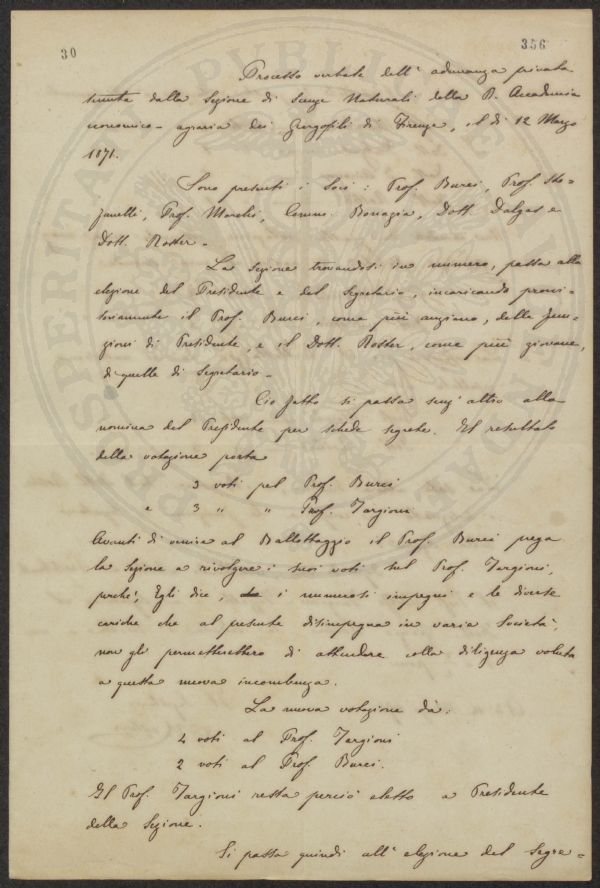 30
356
Processo verbale dell' adunanza privata
tenuta dalla Sezione di Scienze Naturali della R. Accademia
economico-agraria dei Georgofili di Firenze, il dì 12 Marzo
1871.
Sono presenti i Soci: Prof. Burci, Prof. Ste=
fanelli, Prof. Marchi, Comm. Bonazia, Dott. Dalgas e
Dott. Roster.
La Sezione trovandosi in numero, passa alla
elezione del Presidente e del Segretario, incaricando provvi=
soriamente il Prof. Burci, come più anziano, delle fun=
zioni di Presidente, e il Dott. Roster, come più giovane,
di quelle di Segretario.
Ciò fatto si passa senz' altro alla
nomina del Presidente per schede segrete. Il resultato
della votazione porta
3 voti pel Prof. Burci
e 3 " " Prof. Targioni
Avanti di venire al Ballottaggio il Prof. Burci prega
la Sezione a rivolgere i suoi voti sul Prof. Targioni,
perché, Egli dice, i numerosi impegni e le diverse
cariche che al presente disimpegna in varie Società,
non gli permetterebbero di attendere colla diligenza voluta
a questa nuova incombenza.
La nuova votazione dà:
4 voti al Prof. Targioni
2 voti al Prof. Burci.
Il Prof. Targioni resta perciò eletto a Presidente
della Sezione.
Si passa quindi all' elezione del Segre=
PVBLICAE
PROSPERITATI